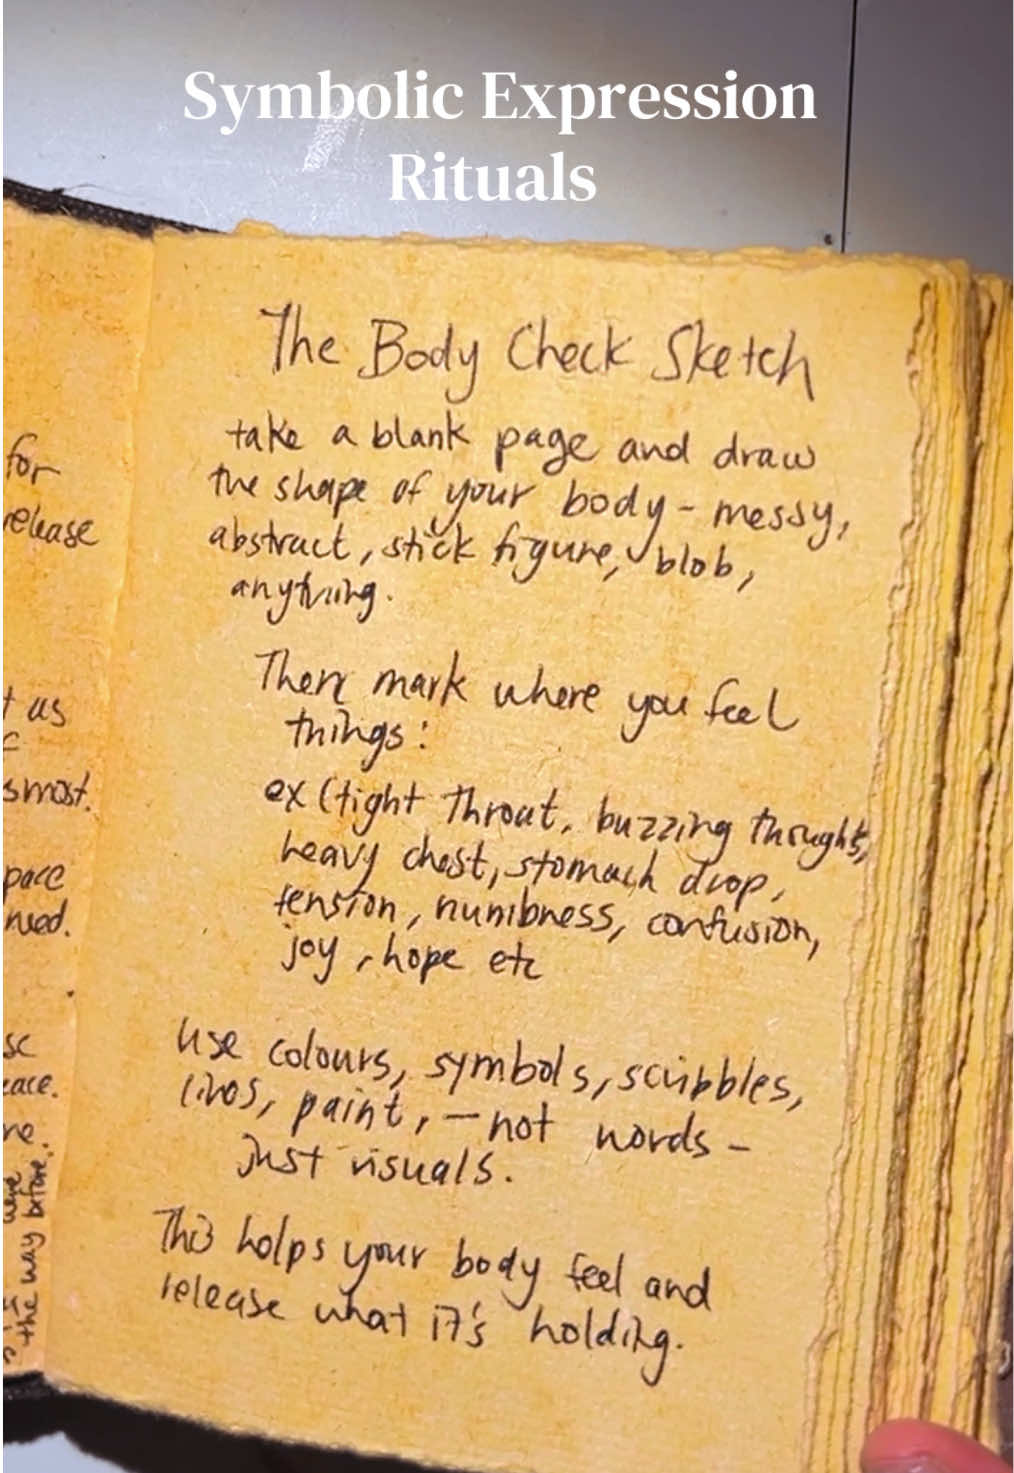 Symbolic Expression
Rituals
for
release
t us
smost.
pace
need.
sc
eace.
ne.
were
the way before.
The Body Check Sketch
take a blank page and draw
the shape of your body - messy,
abstract, stick figure, blob,
anything.
Then mark where you feel
things:
ex (tight throat, buzzing thoughts,
heavy chest, stomach drop,
tension, numbness, confusion,
joy, hope etc
use colours, symbols, scribbles,
lines, paint, - not words -
just visuals.
This helps your body feel and
release what it's holding.